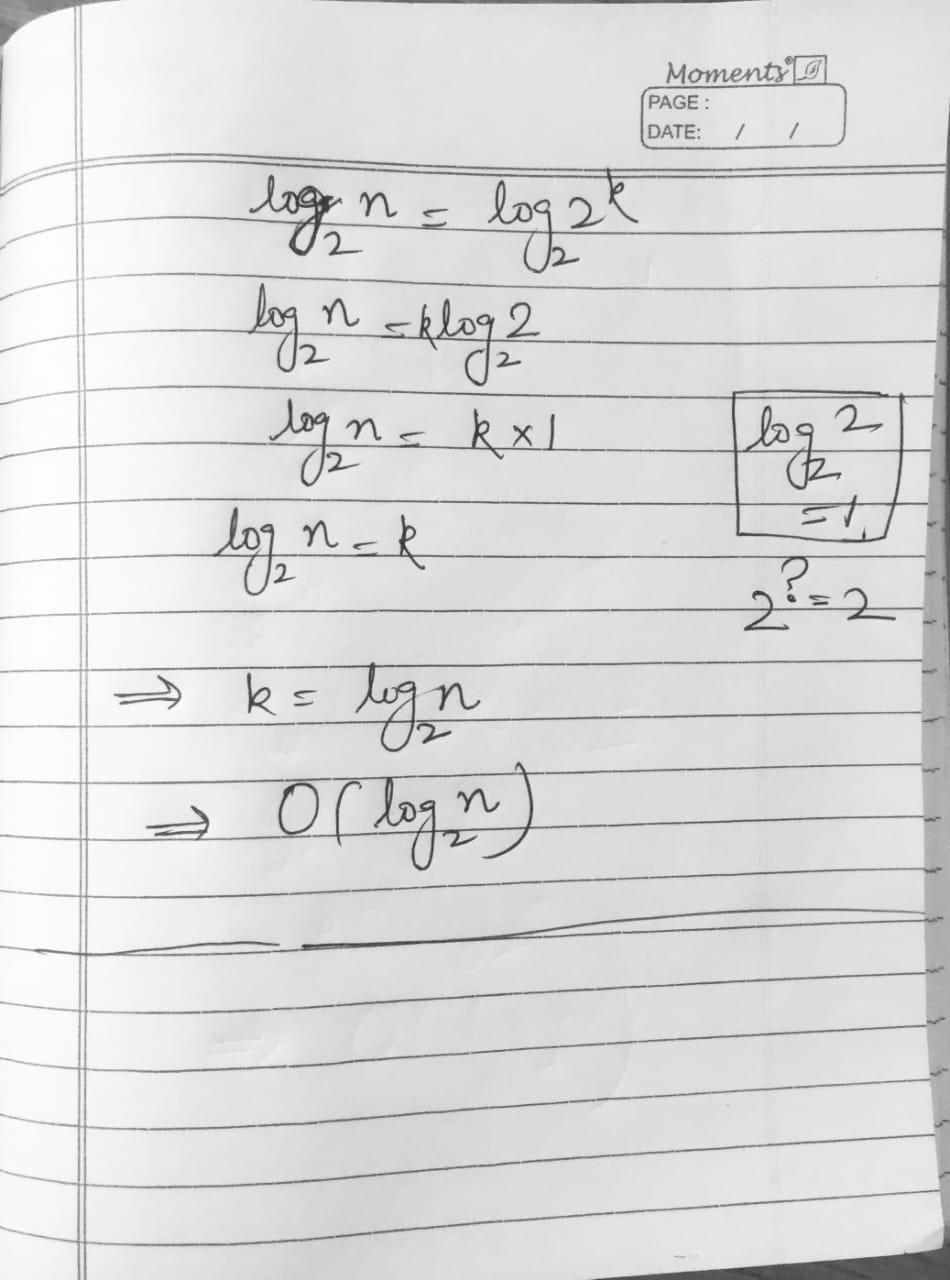 Moments®
PAGE :
DATE: / /
log₂ n = log₂ 2ᵏ
log₂ n = k log₂ 2
log₂ n = k × 1
log₂ 2
= 1
log₂ n = k
2^? = 2
⇒ k = log₂ n
⇒ O( log₂ n )